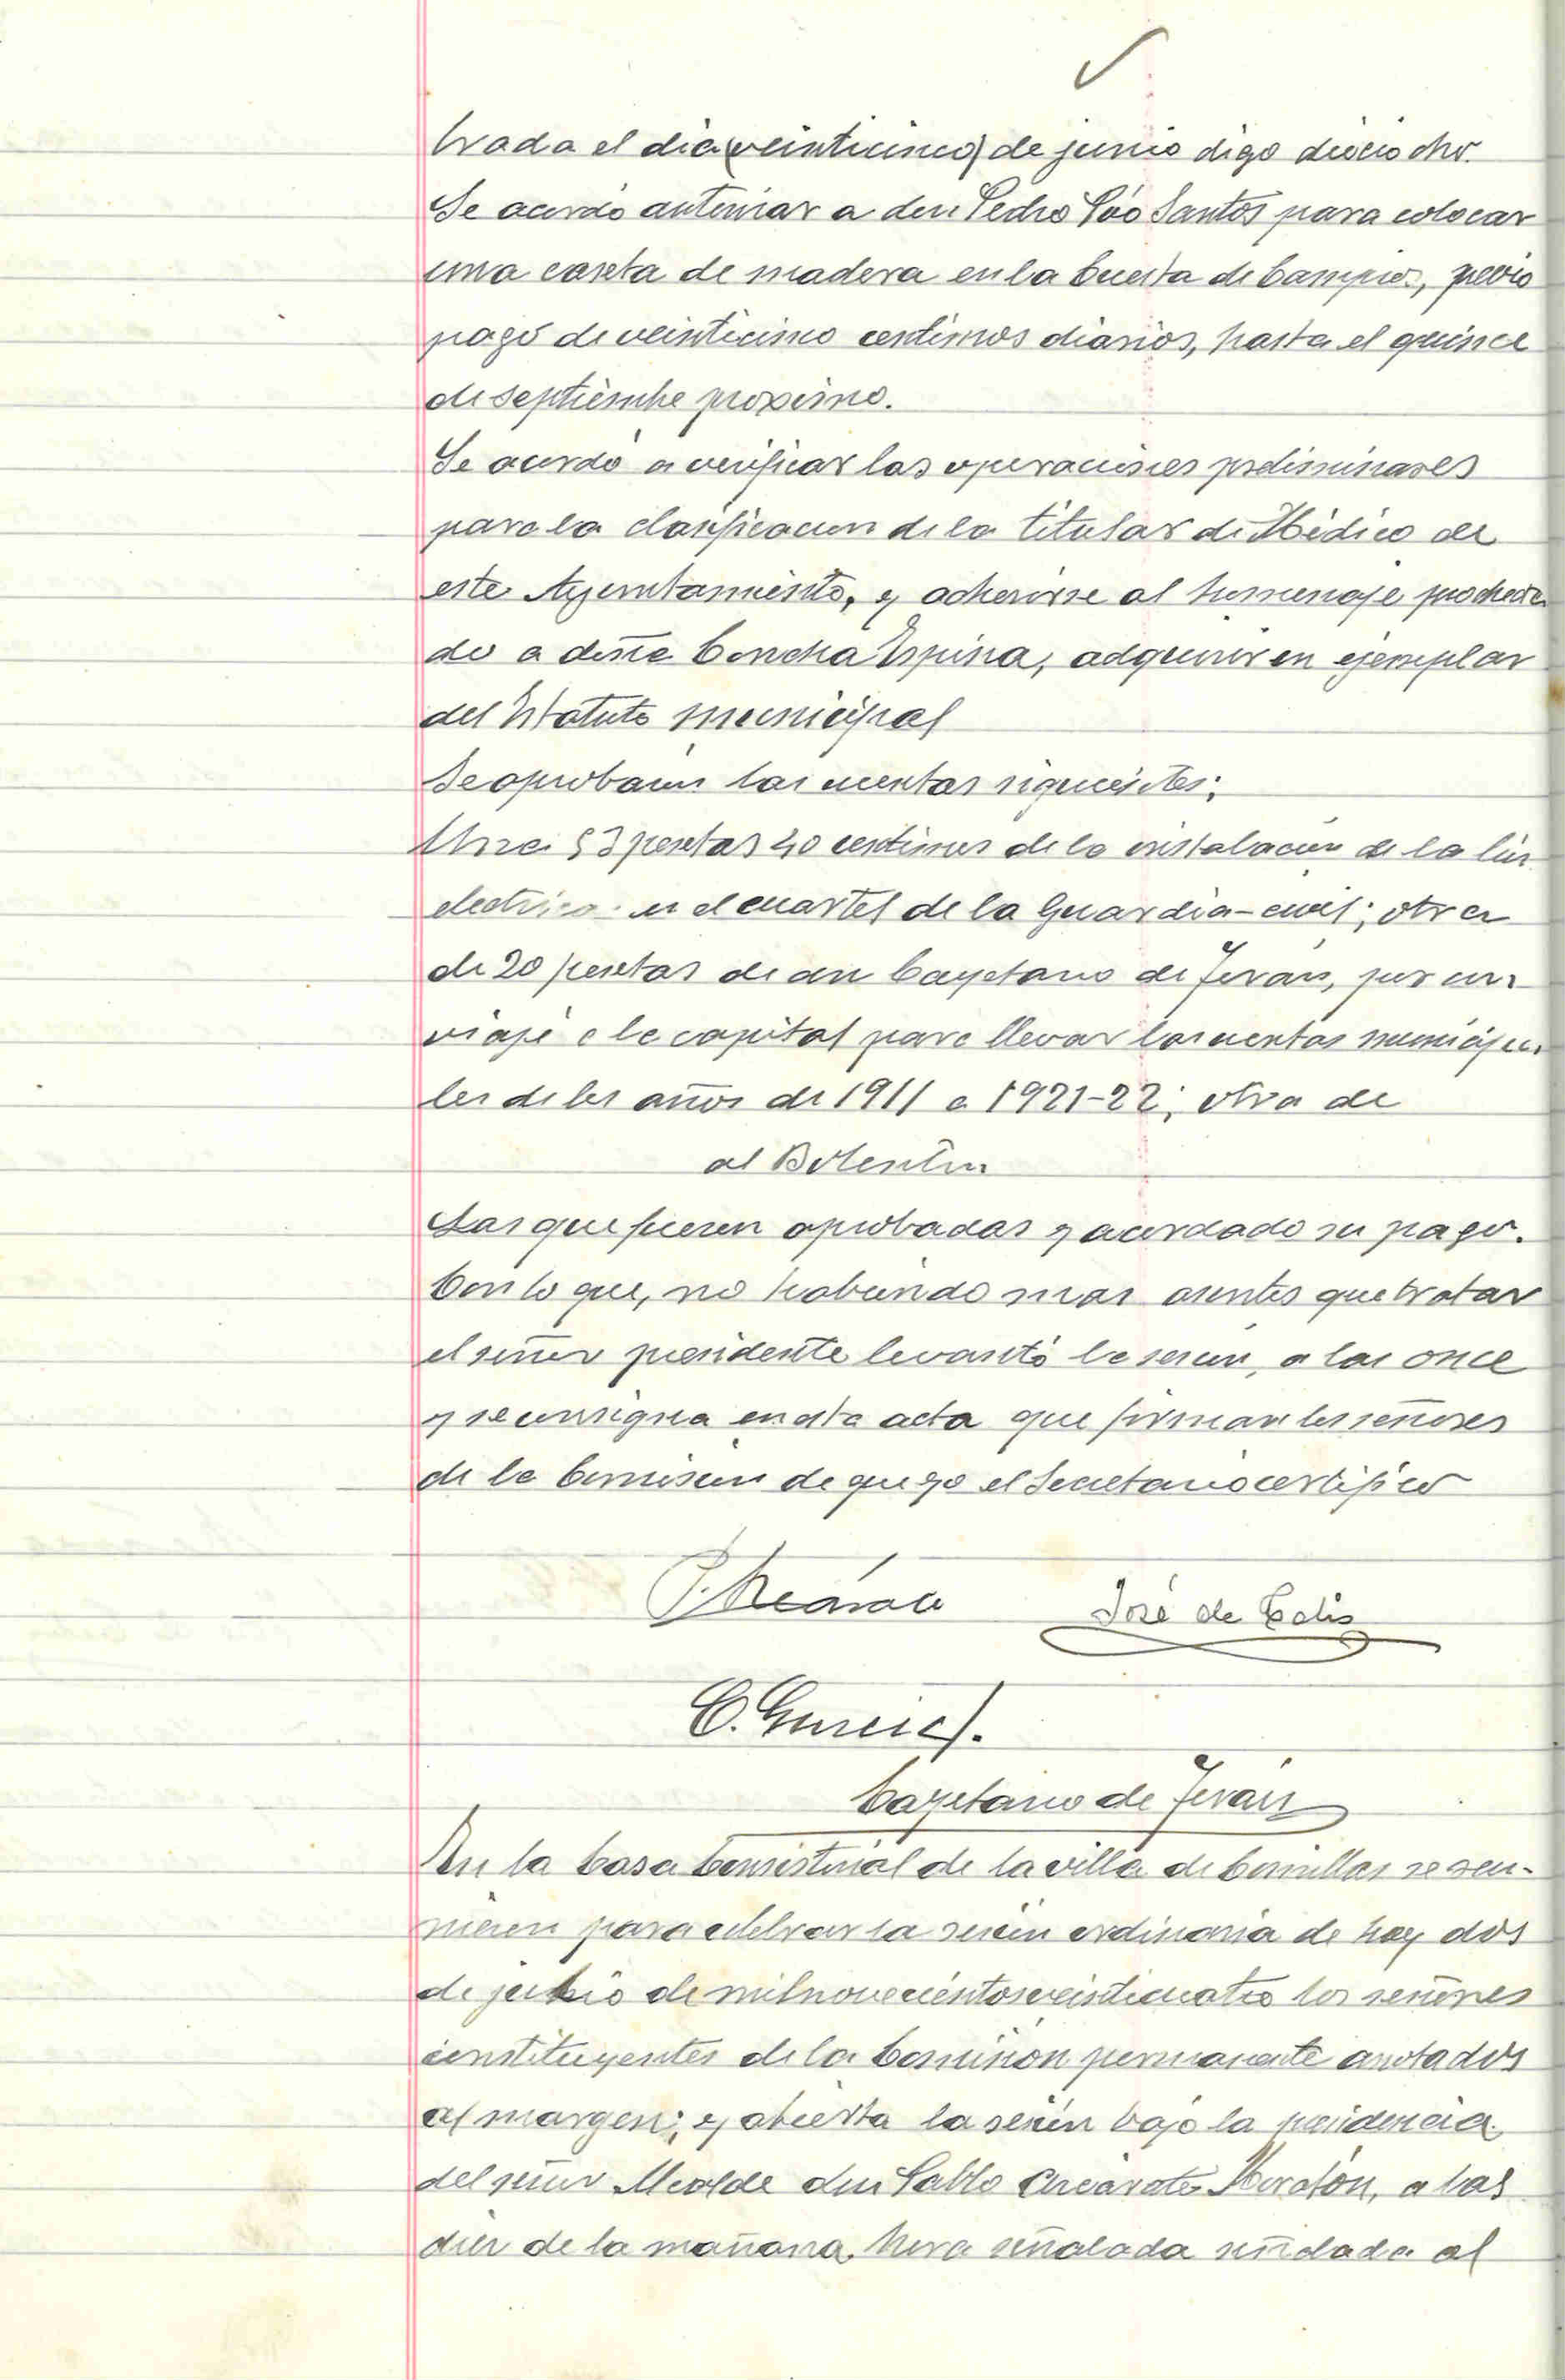 brada el dia (veinticinco) de junio digo dieciocho.
Se acordó autorizar a don Pedro Pöo Santos para colocar
una caseta de madera en la Cuesta de Campios, previo
pago de veinticinco centimos diarios, hasta el quince
de septiembre proximo.
Se acordó a verificar las operaciones preliminares
para la clasificacion de la titular de Médico de
este Ayuntamiento, y adherirse al homenaje
do a doña Concha Espina, adquirir un ejemplar
del Estatuto municipal
Se aprobaron las cuentas siguientes:
Una 53 pesetas 40 centimos de la instalacion de la luz
electrica en el cuartel de la Guardia-civil; otra
de 20 pesetas de don Cayetano de Terán, por un
viaje a la capital para llevar las cuentas municipa
les de los años de 1911 a 1921-22; otra de
al
Las que fueron aprobadas y acordado su pago.
Con lo que, no habiendo mas asuntos que tratar
el señor presidente levantó la sesion, a las once
y se consigna en esta acta que firman los señores
de la Comision de que yo el Secretario certifico
José de Celis
C. Garcia.
Cayetano de Terán
En la Casa Consistorial de la villa de Comillas se reu-
nieron para celebrar la sesion ordinaria de hoy dos
de julio de mil novecientos veinticuatro los señores
constituyentes de la Comision permanente anotados
al margen; y abierta la sesión bajo la presidencia
del señor Alcalde don Pablo a las
diez de la mañana, hora señalada señalada al